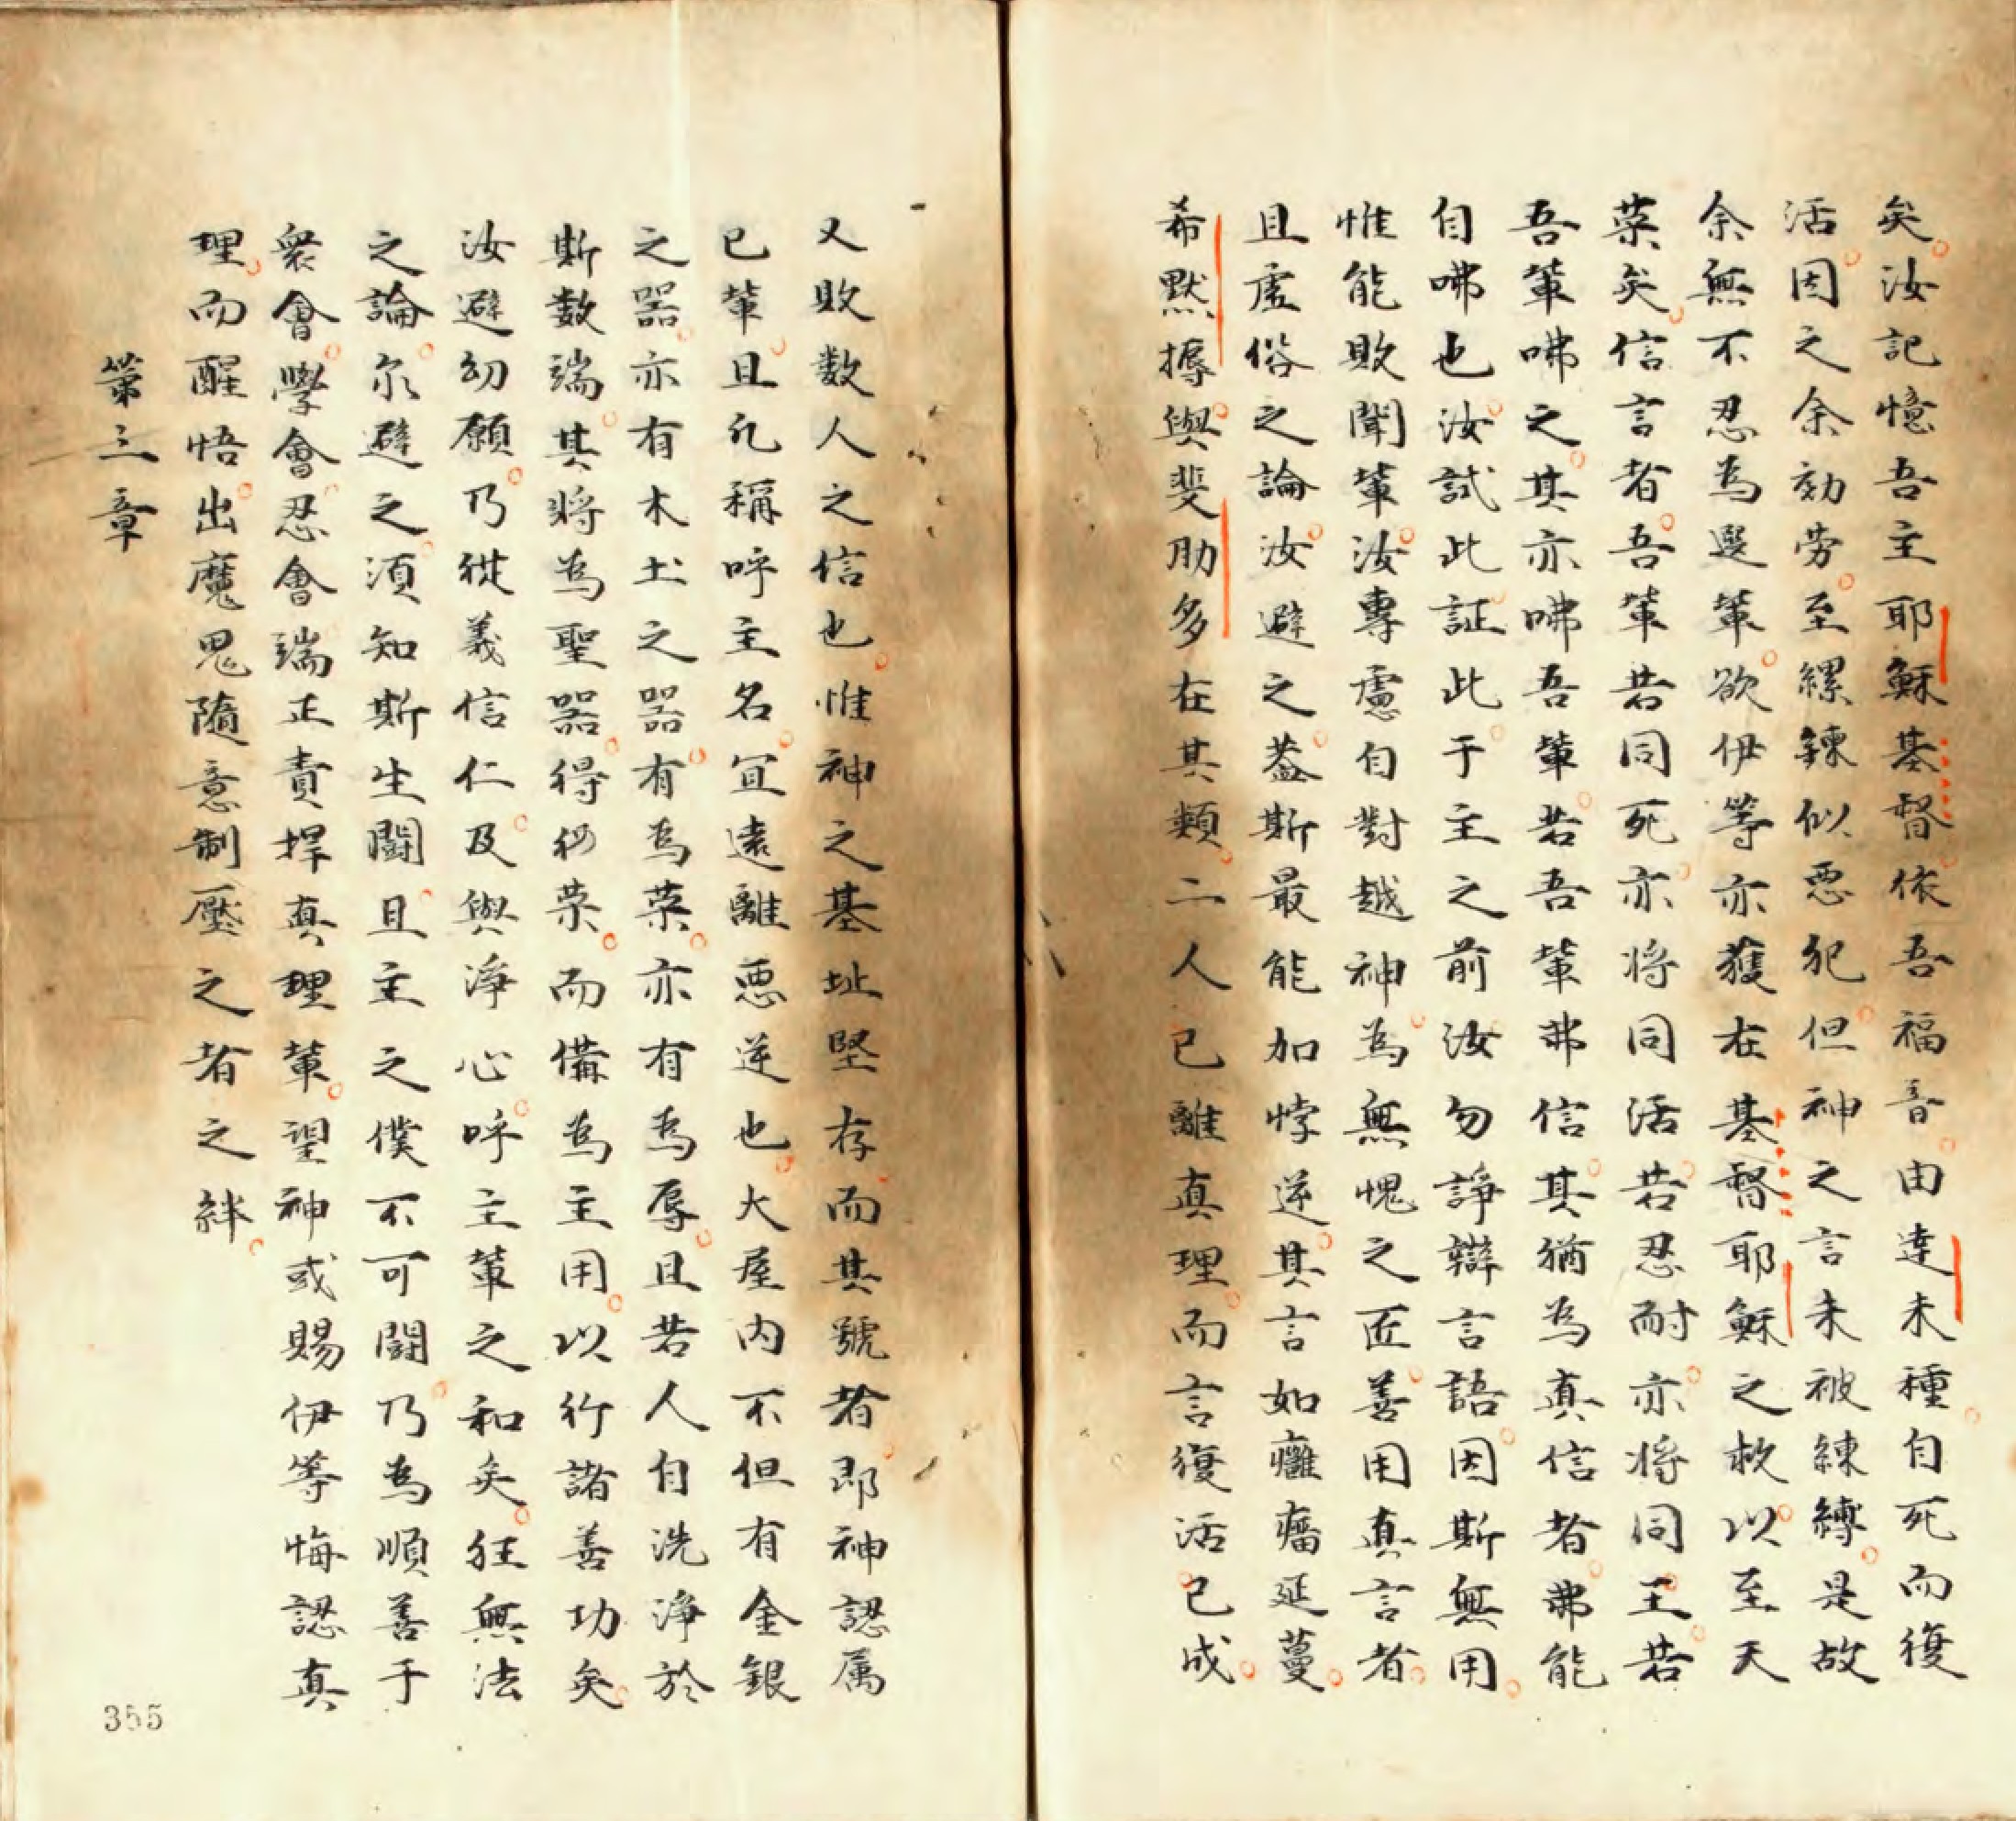 矣汝記憶吾主耶穌基督依吾福音由達未種自死而復
活因之余劾劳至縲鍊似悪犯但神之言未被練縛是故
余無不忍為選輩欲伊等亦獲在基督耶穌之救以至天
荣矣信言者吾輩若同死亦将同活若忍耐亦将同王若
吾輩咈之其亦咈吾輩若吾輩弗信其猶為真信者弗能
自咈也汝試此証此于主之前汝勿諍辯言語因斯無用
惟能敗聞輩汝專慮自對越神為無愧之匠善用真言者
且虗俗之論汝避之葢斯最能加悖逆其言如癰瘤延蔓
希黙搙與斐肋多在其類二人已離真理而言復活已成
又敗数人之信也惟神之基址堅存而其號者即神認属
已輩且凢稱呼主名宜遠離悪逆也大屋内不但有金銀
之器亦有木土之器有為荣亦有為辱且若人自洗浄於
斯数端其将為聖器得扵荣而備為主用以行諸善功矣
汝避幼願乃従義信仁及與淨心呼主輩之和矣狂無法
之論尔避之湏知斯生鬪且主之僕不可鬪乃為順善于
衆會學會忍會端正責捍真理輩望神或賜伊等悔認真
理而醒悟出魔鬼隨意制壓之者之絆
第三章
355